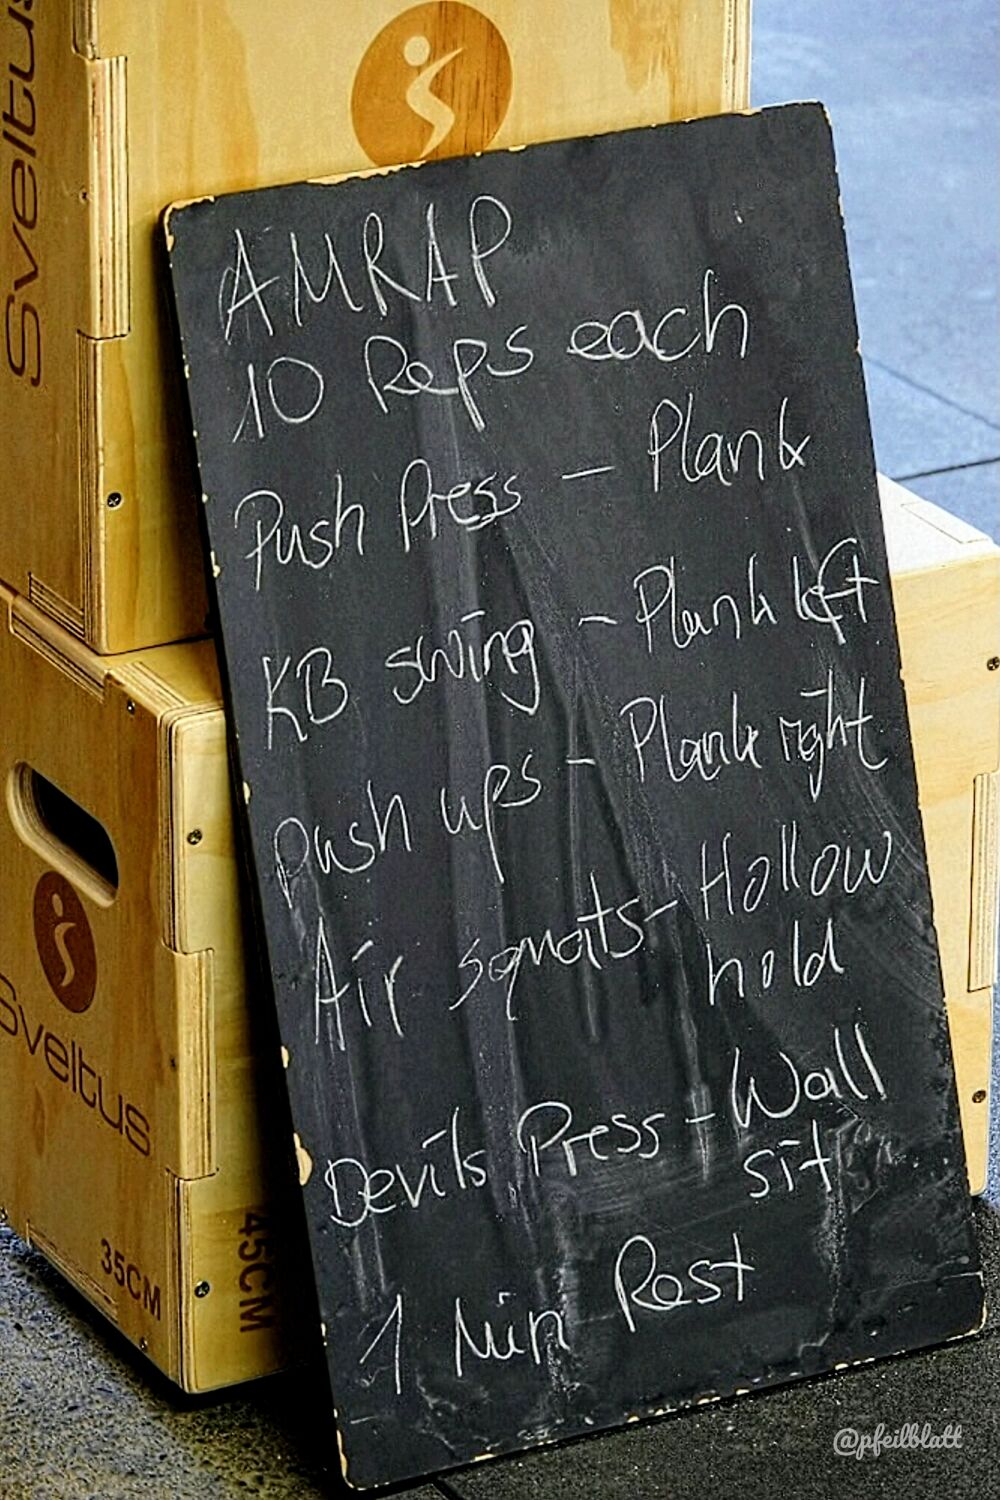 Sveltus
AMRAP
10 Reps each
Push Press - Plank
KB swing - Plank left
push ups - Plank right
Air squats - Hollow
hold
Devils Press - Wall
sit
1 Min Rest
Sveltus
35CM
45CM
@pfeilblatt